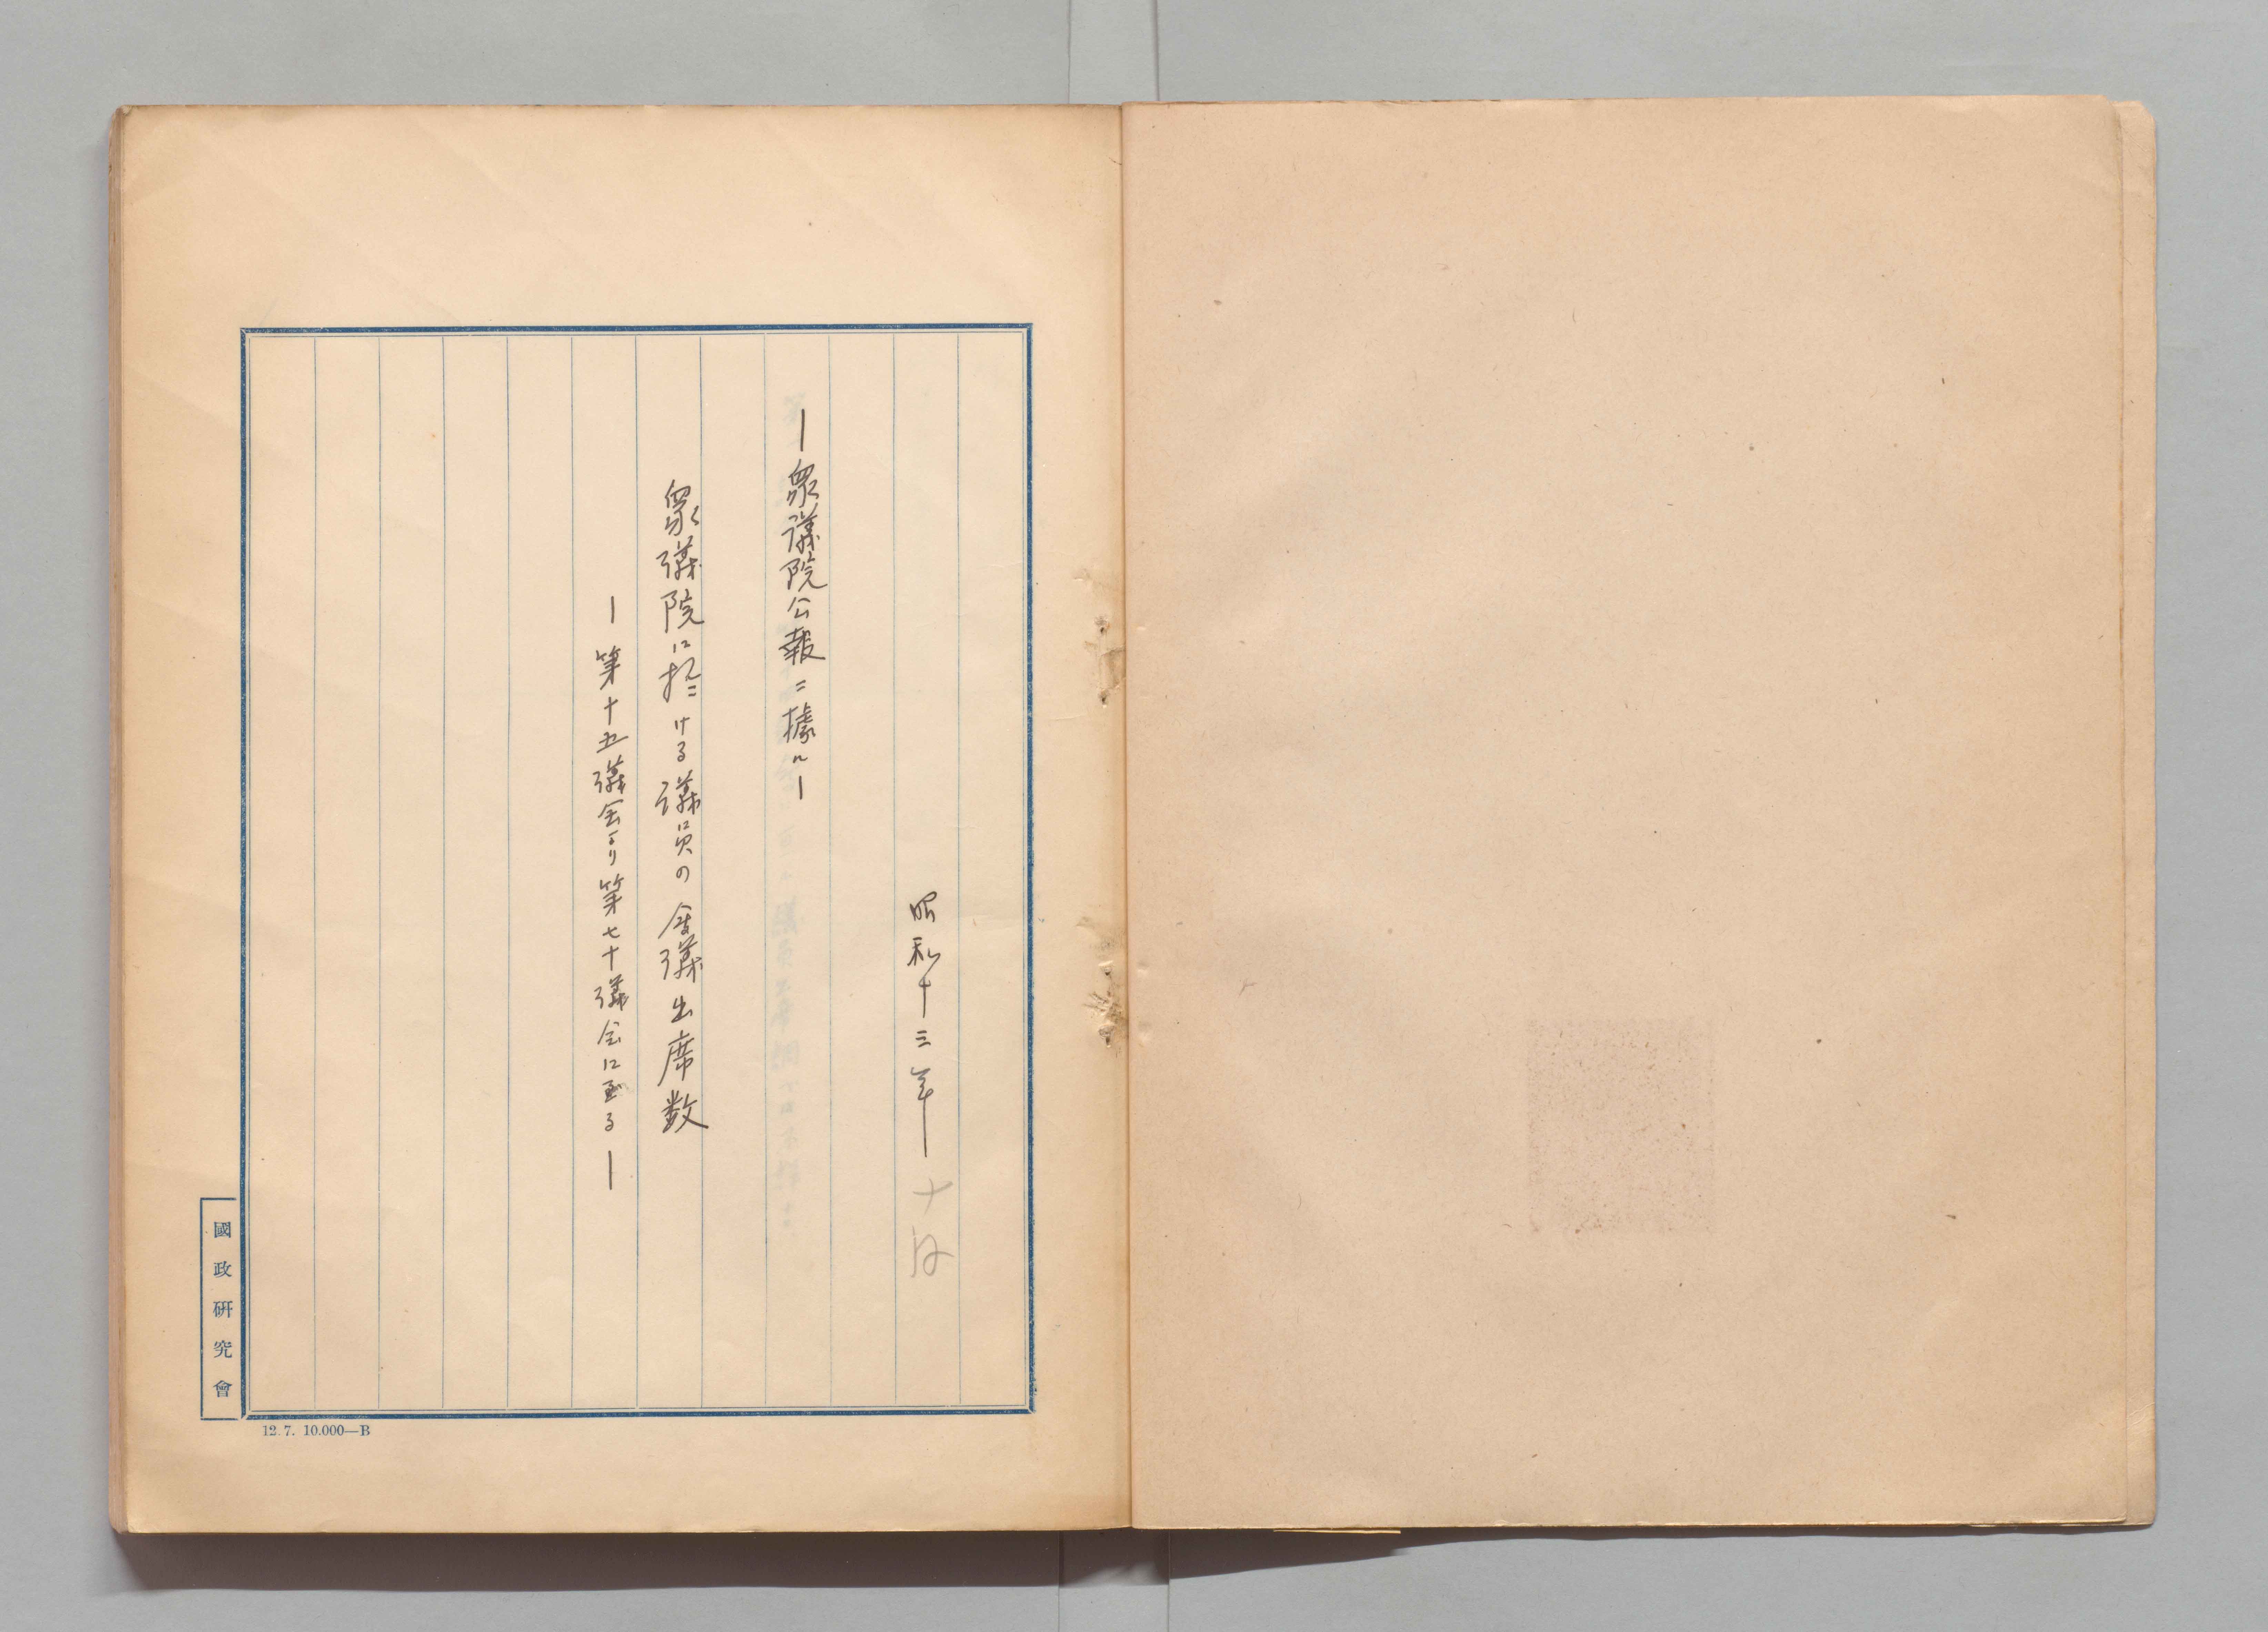 昭和十三年十月
―衆議院公報ニ據ル―
衆議院に於ける議員の会議出席数
―第十五議会より第七十議会に至る―
國政研究會
12.7. 10.000―B